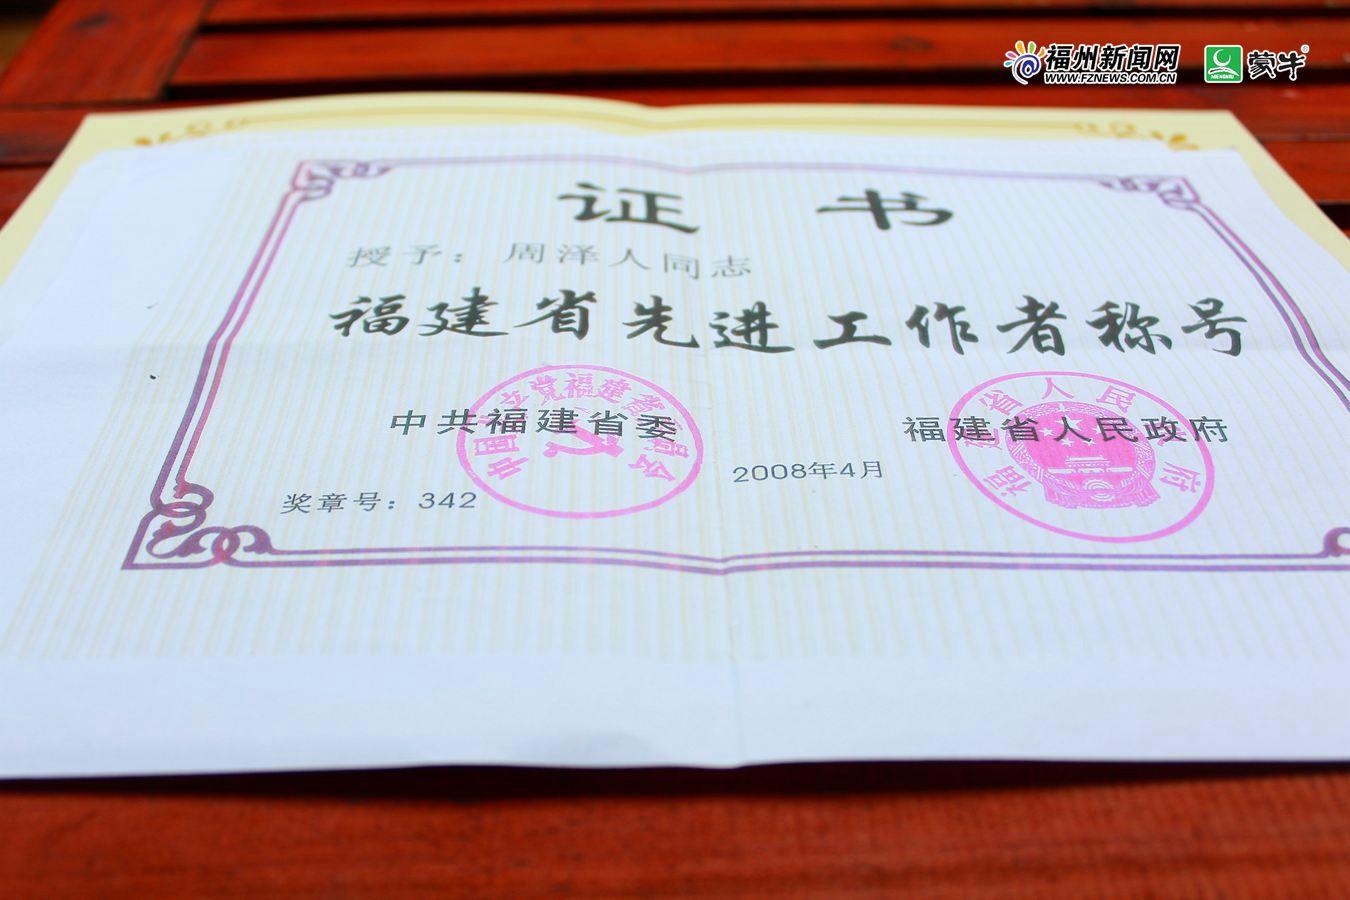 福州新闻网
WWW.FZNEWS.COM.CN
MENGNIU
蒙牛®
证书
授予：周泽人同志
福建省先进工作者称号
中共福建省委
福建省人民政府
2008年4月
奖章号：342
中国共产党福建省委员会
福建省人民政府